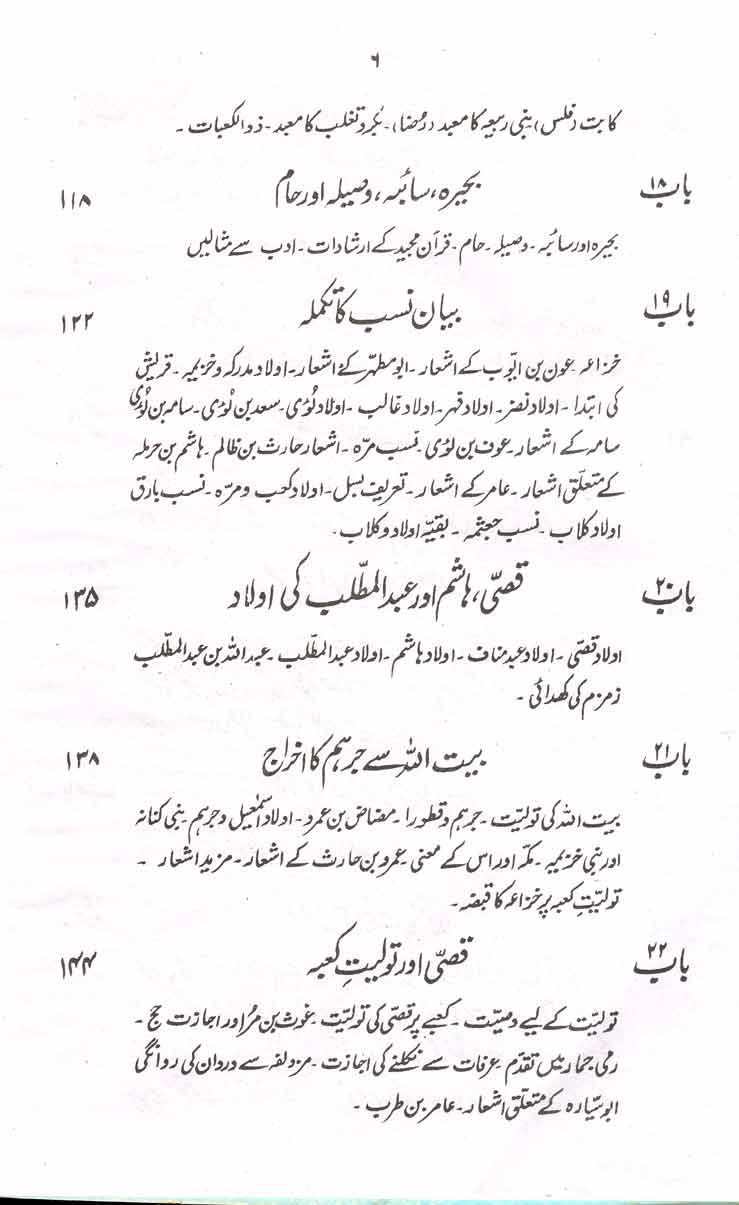 ۶
کا بت (فلس) بنی ربیعہ کا معبد (رُضا)۔ بکر و تغلب کا معبد۔ ذو الکعبات۔
باب ۱۸ بحیرہ، سائبہ، وصیلہ اور حام ۱۱۸
بحیرہ اور سائبہ۔ وصیلہ۔ حام۔ قرآن مجید کے ارشادات۔ ادب سے مثالیں
باب ۱۹ بیان نسب کا تکملہ ۱۲۲
خزاعہ۔ عون بن ایّوب کے اشعار۔ ابو مطہّر کے اشعار۔ اولاد مدرکہ و خزیمہ۔ قریش
کی ابتدا۔ اولاد نضر۔ اولاد فہر۔ اولاد غالب۔ اولاد لُوئی۔ سعد بن لُوئی۔ سامہ بن لُوئی
سامہ کے اشعار۔ عوف بن لوئی۔ نسب مرّہ۔ اشعار حارث بن ظالم۔ ہاشم بن حرملہ
کے متعلّق اشعار۔ عامر کے اشعار۔ تعریف بسل۔ اولاد کعب و مرّہ۔ نسب بارق
اولاد کلاب۔ نسب جعثمہ۔ بقیّہ اولاد و کلاب۔
باب ۲۰ قصّی، ہاشم اور عبد المطّلب کی اولاد ۱۳۵
اولاد قصّی۔ اولاد عبد مناف۔ اولاد ہاشم۔ اولاد عبد المطّلب۔ عبد اللہ بن عبد المطّلب
زمزم کی کھدائی۔
باب ۲۱ بیت اللہ سے جرہم کا اخراج ۱۳۸
بیت اللہ کی تولیّت۔ جرہم و قطورا۔ مضاض بن عمرو۔ اولاد اسمٰعیل و جرہم۔ بنی کنانہ
اور بنی خزیمہ۔ مکّہ اور اس کے معنی۔ عمرو بن حارث کے اشعار۔ مزید اشعار۔
تولیّتِ کعبہ پر خزاعہ کا قبضہ۔
باب ۲۲ قصّی اور تولیتِ کعبہ ۱۴۴
تولیّت کے لیے وصیّت۔ کعبے پر قصّی کی تولیّت۔ غوث بن مُر اور اجازت حج۔
رمی جمار میں تقدّم۔ عرفات سے نکلنے کی اجازت۔ مزدلفہ سے دردان کی روانگی
ابو سیّارہ کے متعلّق اشعار۔ عامر بن ظرب۔